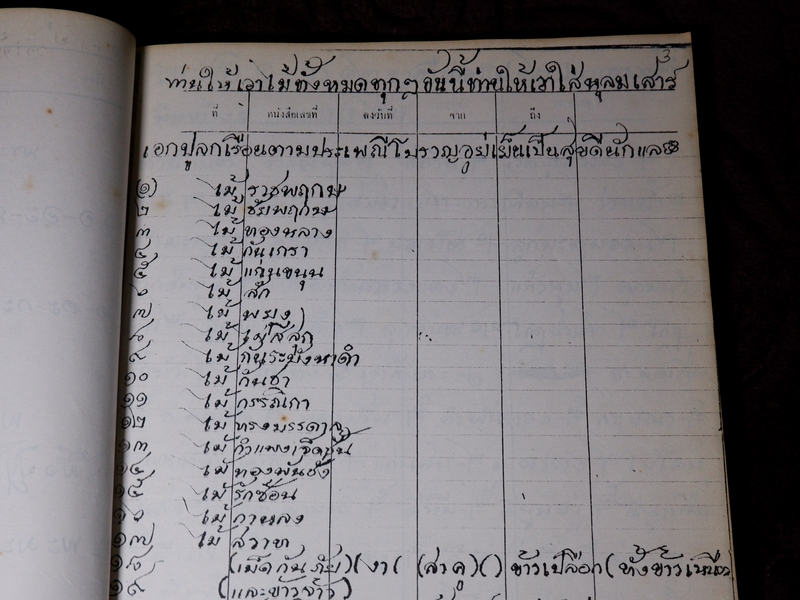 ๓
ท่านให้เอาไม้ทั้งหมดทุกๆอันนี้ท่านให้เอาใส่หลุมเสาร์
ที่ หนังสือเลขที่ ลงวันที่ จาก ถึง
เอกปลูกเรือนตามประเพณีโบราญอยู่เย็นเป็นสุขดีนักแล
(๑) ไม้ ราชพฤกษ
๒ ไม้ ชัยพฤกษ
๓ ไม้ ทองหลาง
๔ ไม้ กันเกรา
๕ ไม้ แก่นขนุน
๖ ไม้ สัก
๗ ไม้ พยุง
๘ ไม้ ไผ่สีสุก
๙ ไม้
๑๐ ไม้ กันชา
๑๑ ไม้ กรรณิกา
๑๒ ไม้ ทรงบรรดาล
๑๓ ไม้ กำแพงเจ็ดชั้น
๑๔ ไม้ ทองพันชั่ง
๑๕ ไม้ รักซ้อน
๑๖ ไม้ กานลง
๑๗ ไม้ สวาท
๑๘ (เม็ดกันภัย) (งา( (สาคู) () ข้าวเปลือก (ทั้งข้าวเหนียว
๑๙ (และข้าวจ้าว)